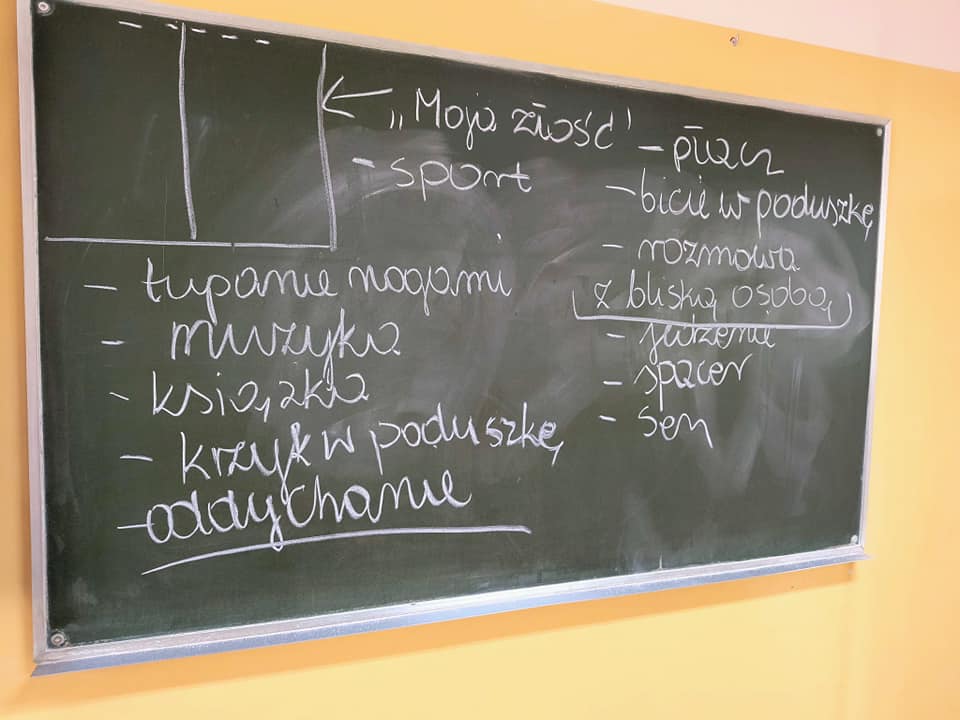 „Moja złość"
- sport
- tupanie nogami
- muzyka
- książka
- krzyk w poduszkę
- oddychanie
- płacz
- bicie w poduszkę
- rozmowa
z bliską osobą
- jedzenie
- spacer
- sen